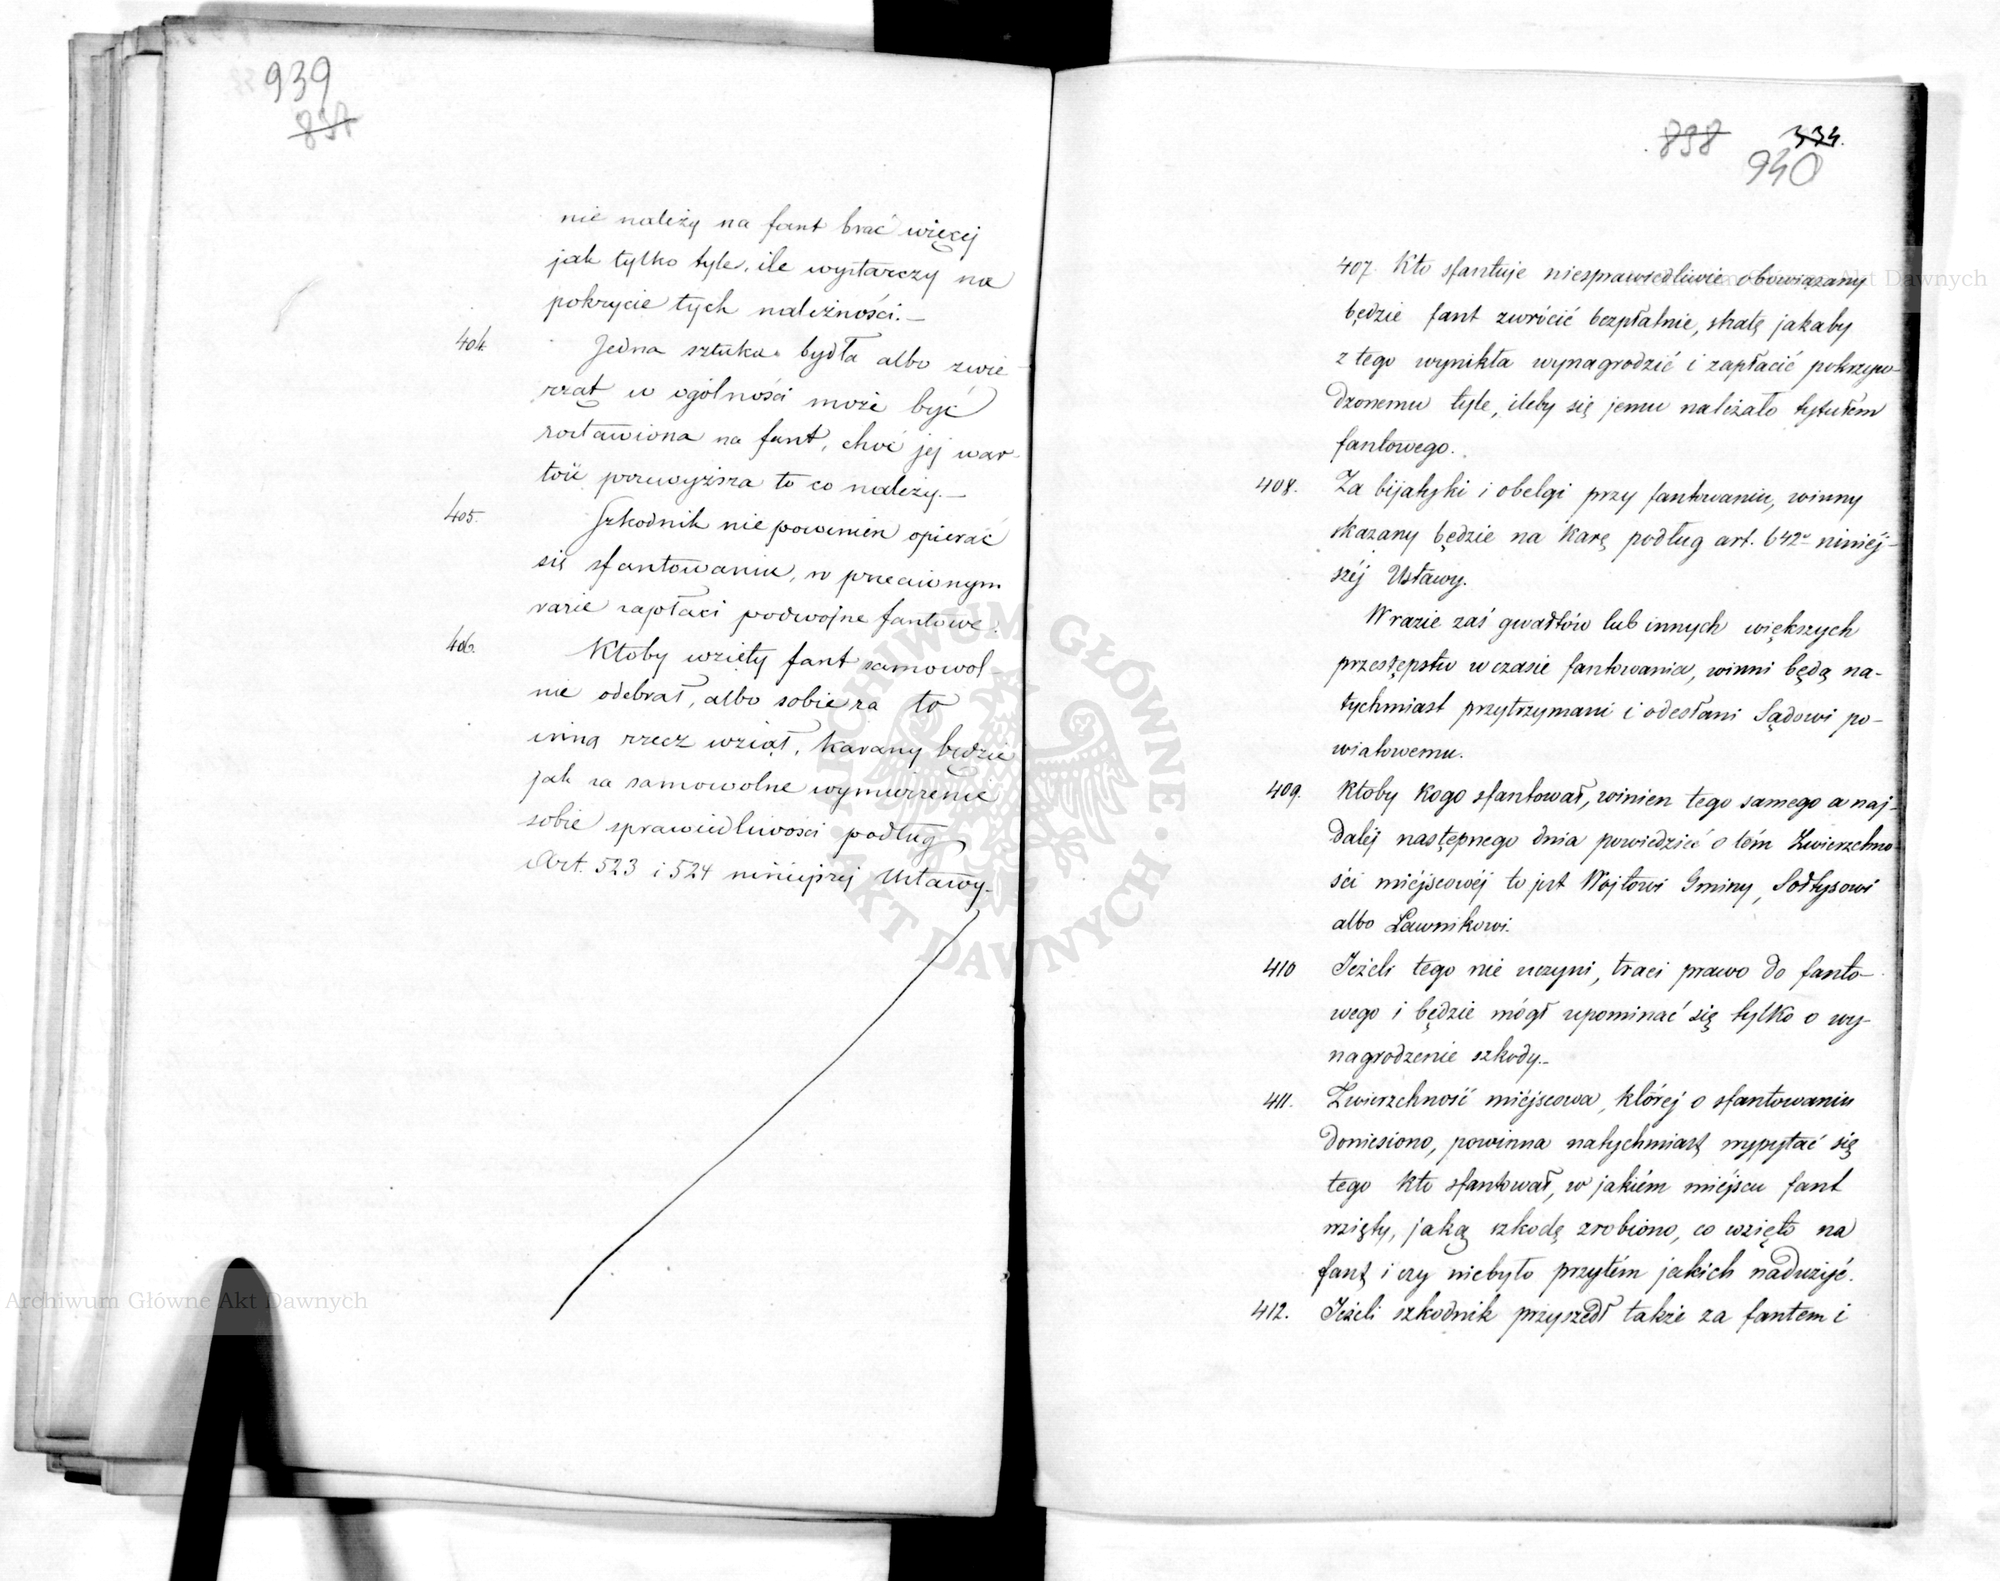 939
837
nie należy na fant brać więcej
jak tylko tyle, ile wystarczy na
pokrycie tych należności.—
404. Jedna sztuka bydła albo zwie-
rząt w ogólności może być
zostawiona na fant, choć jej war-
tość przewyższa to co należy.—
405. Szkodnik nie powinien opierać
się sfantowaniu, w przeciwnym
razie zapłaci podwójne fantowe.
406. Ktoby wzięty fant samowol-
nie odebrał, albo sobie za to
inną rzecz wziął, karany będzie
jak za samowolne wymierzenie
sobie sprawiedliwości podług
Art. 523 i 524 niniejszej Ustawy.
898 334.
940
407. Kto sfantuje niesprawiedliwie obowiązany
będzie fant zwrócić bezpłatnie, stratę jakaby
z tego wynikła wynagrodzić i zapłacić pokrzyw-
dzonemu tyle, ileby się jemu należało tytułem
fantowego.
408. Za bijatyki i obelgi przy fantowaniu, winny
skazany będzie na karę podług art. 642 niniéj-
széj Ustawy.
W razie zaś gwałtów lub innych większych
przestępstw w czasie fantowania, winni będą na-
tychmiast przytrzymani i odesłani Sądowi po-
wiatowemu.
409. Ktoby kogo sfantował, winien tego samego a naj-
daléj następnego dnia powiedzieć o tém Zwierzchno-
ści miéjscowéj to jest Wójtowi Gminy, Sołtysowi
albo Ławnikowi.
410 Jeżeli tego nie uczyni, traci prawo do fanto-
wego i będzie mógł upominać się tylko o wy-
nagrodzenie szkody.—
411. Zwierzchność miéjscowa, któréj o sfantowaniu
doniesiono, powinna natychmiast wypytać się
tego kto sfantował, w jakiém miéjscu fant
wzięty, jaką szkodę zrobiono, co wzięto na
fant i czy niebyło przytém jakich nadużyć.
412. Jeżeli szkodnik przyszedł także za fantem i
Archiwum Główne Akt Dawnych
ARCHIWUM GŁÓWNE · AKT DAWNYCH ·
Akt Dawnych